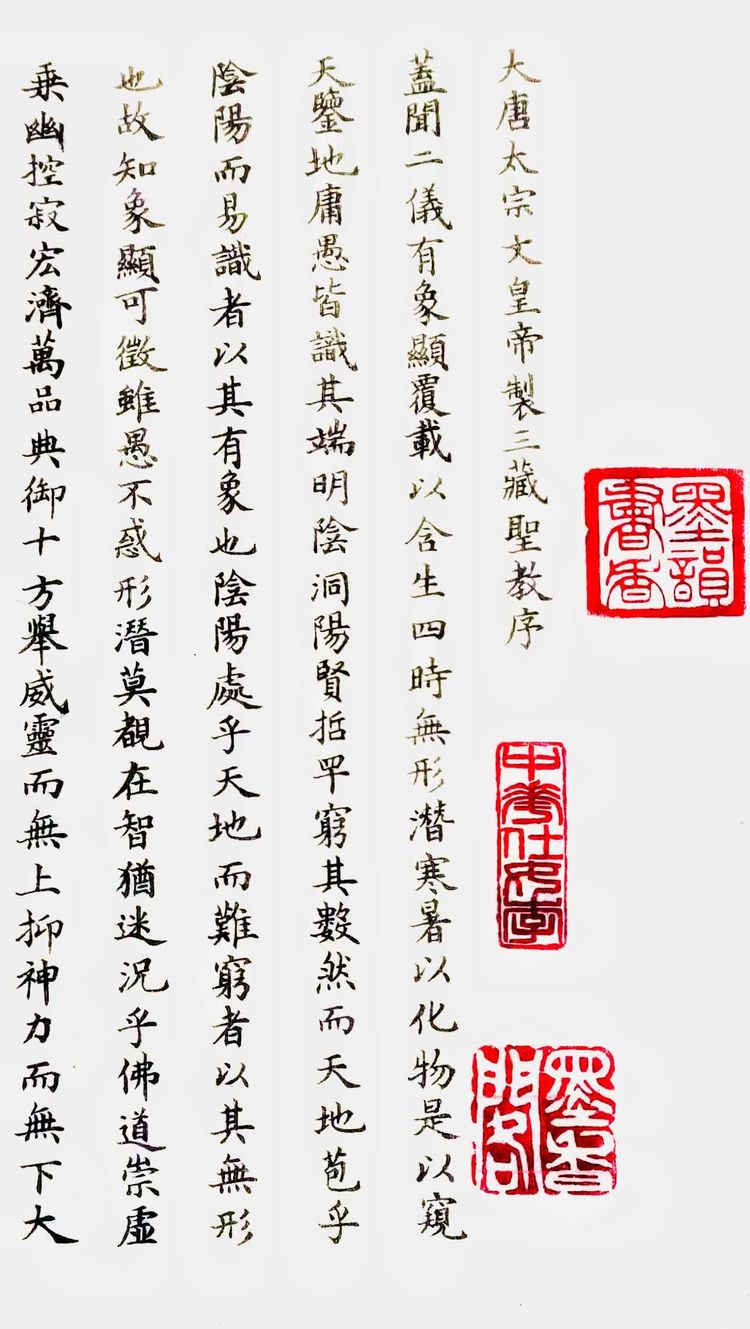 墨韻書香
墨香
大唐太宗文皇帝製三藏聖教序
蓋聞二儀有象顯覆載以含生四時無形潛寒暑以化物是以窺
天鑒地庸愚皆識其端明陰洞陽賢哲罕窮其數然而天地苞乎
陰陽而易識者以其有象也陰陽處乎天地而難窮者以其無形
也故知象顯可徵雖愚不惑形潛莫覩在智猶迷況乎佛道崇虛
乘幽控寂宏濟萬品典御十方舉威靈而無上抑神力而無下大